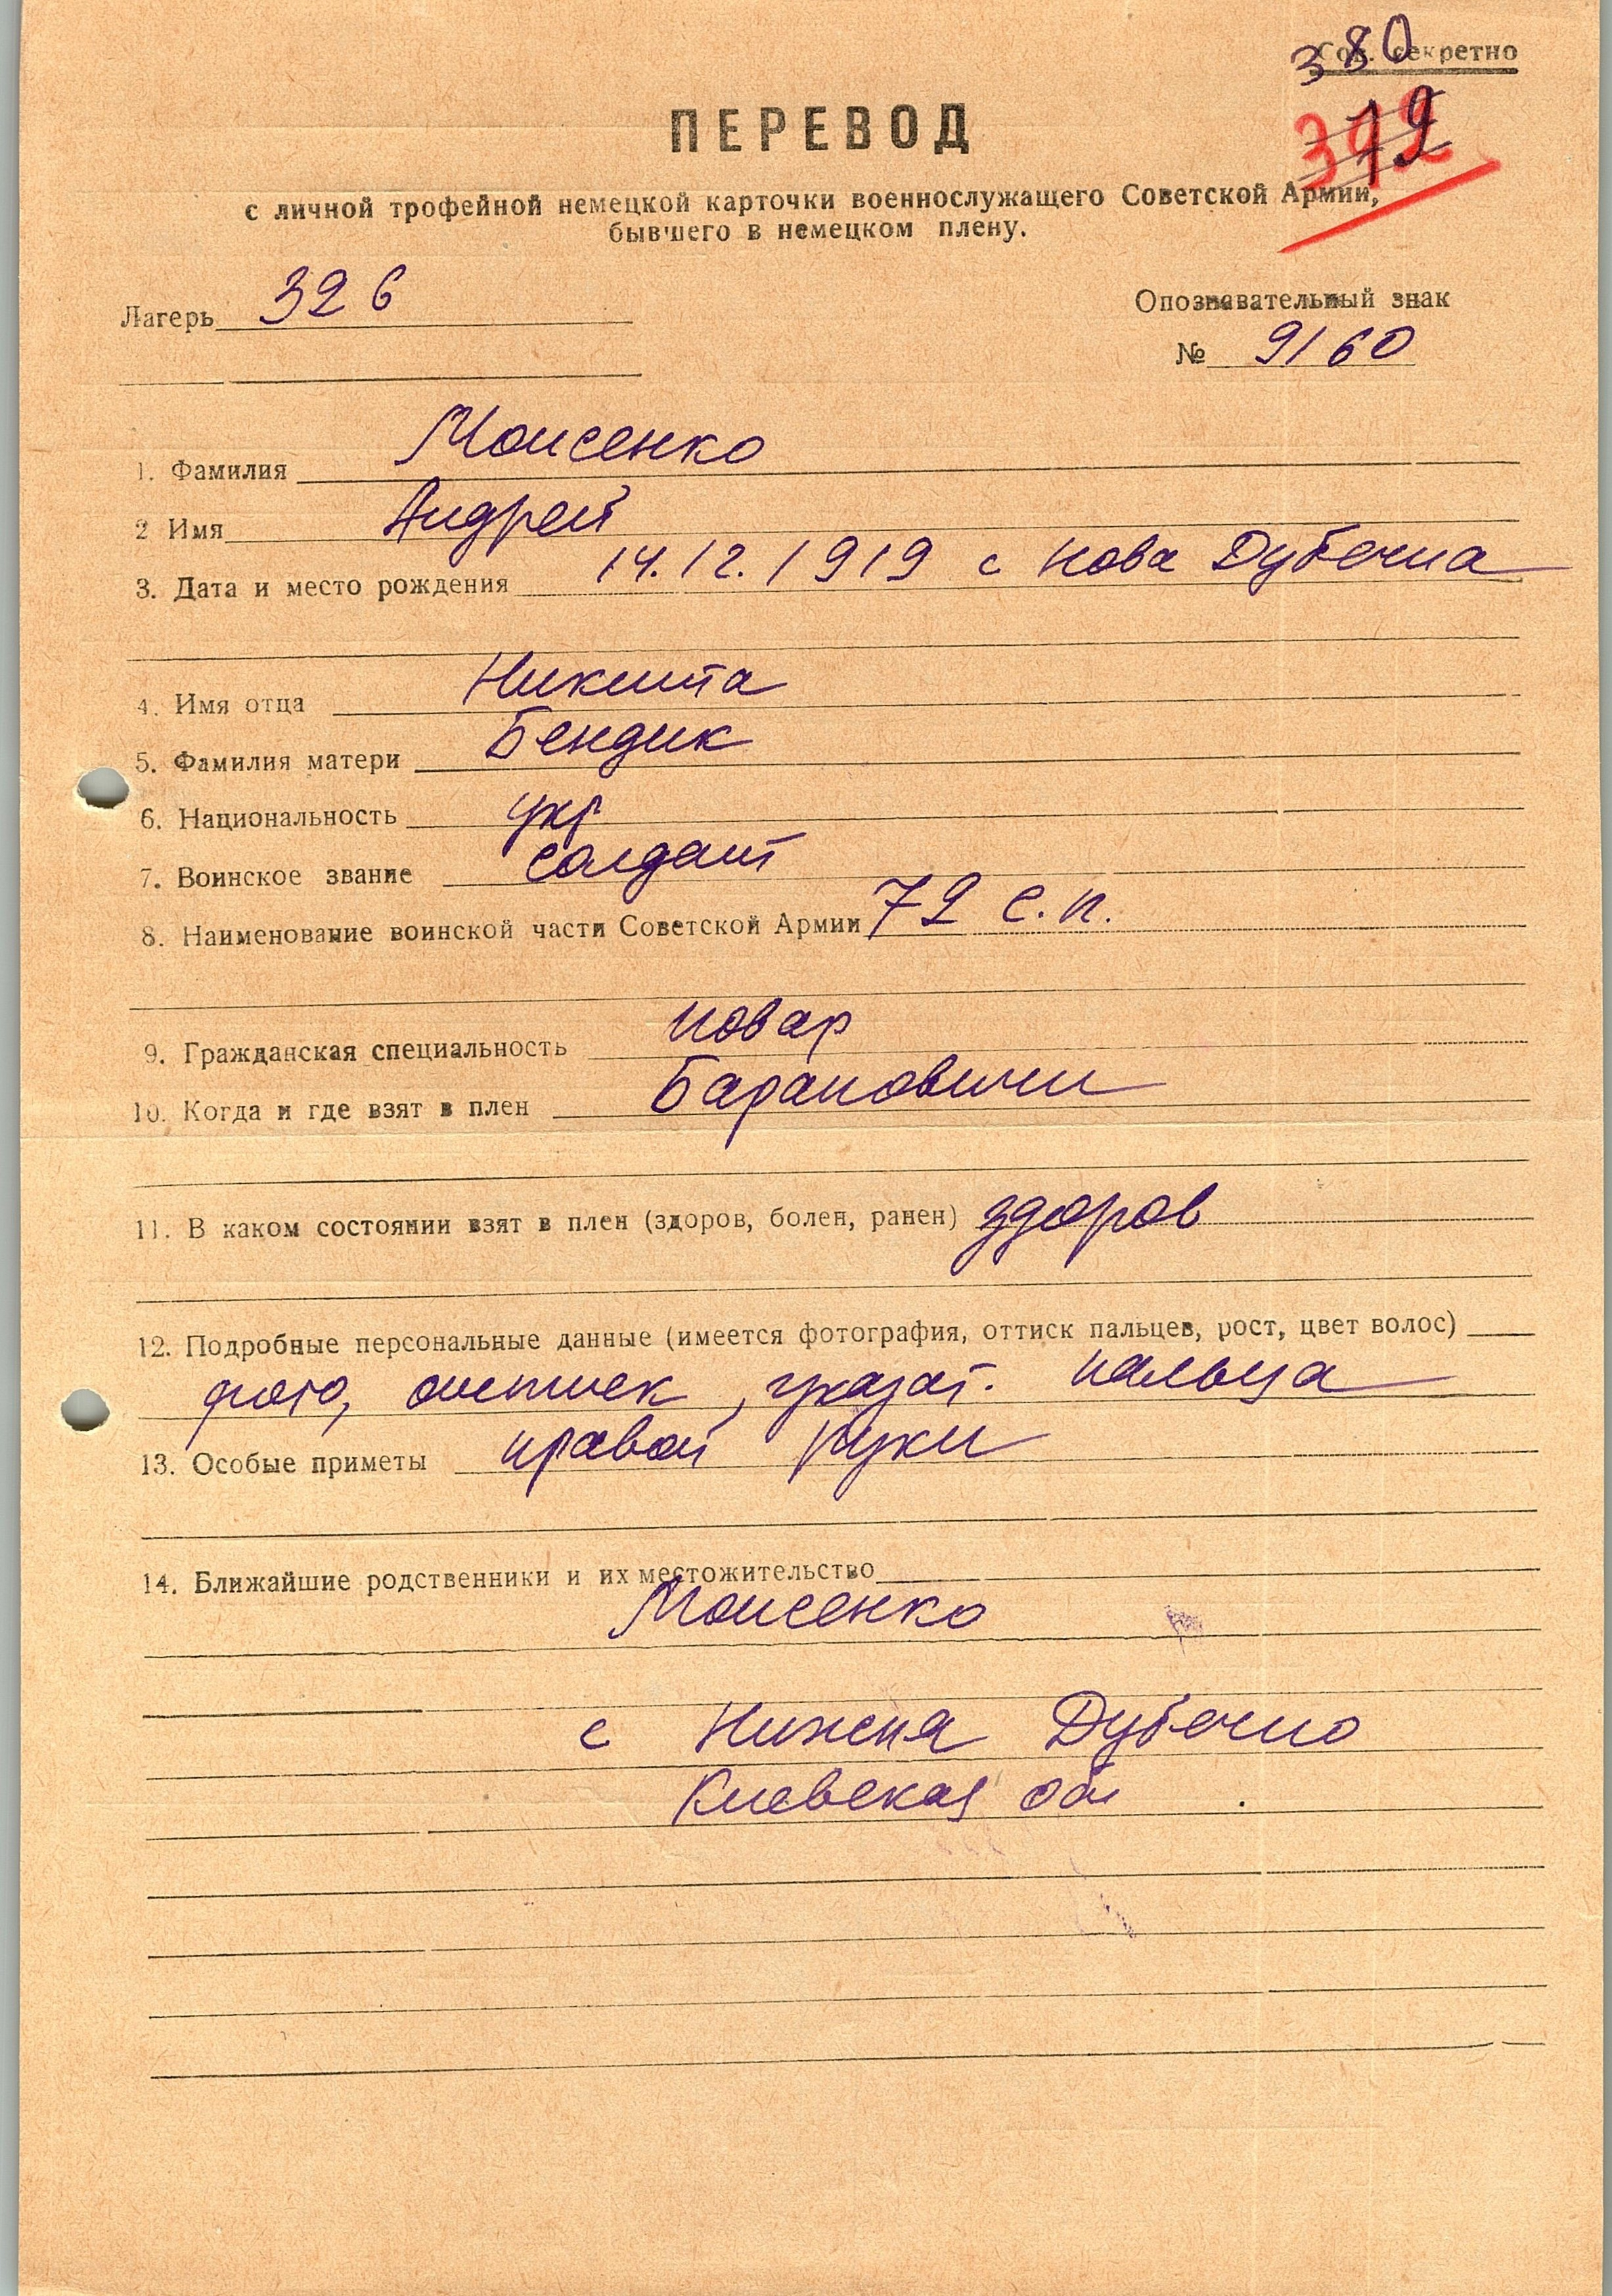 380
Сов. секретно
ПЕРЕВОД
с личной трофейной немецкой карточки военнослужащего Советской Армии,
бывшего в немецком плену.
Лагерь 326
Опознавательный знак
№ 9160
1. Фамилия Моисенко
2 Имя Андрей
3. Дата и место рождения 14.12.1919 с Нова Дубечна
4. Имя отца Никита
5. Фамилия матери Бендик
6. Национальность укр
7. Воинское звание солдат
8. Наименование воинской части Советской Армии 72 с.п.
9. Гражданская специальность повар
10. Когда и где взят в плен Барановичи
11. В каком состоянии взят в плен (здоров, болен, ранен) здоров
12. Подробные персональные данные (имеется фотография, оттиск пальцев, рост, цвет волос)
фото, , указат. пальца
13. Особые приметы правой руки
14. Ближайшие родственники и их местожительство
Моисенко
с Нижня Дубечно
Киевская обл